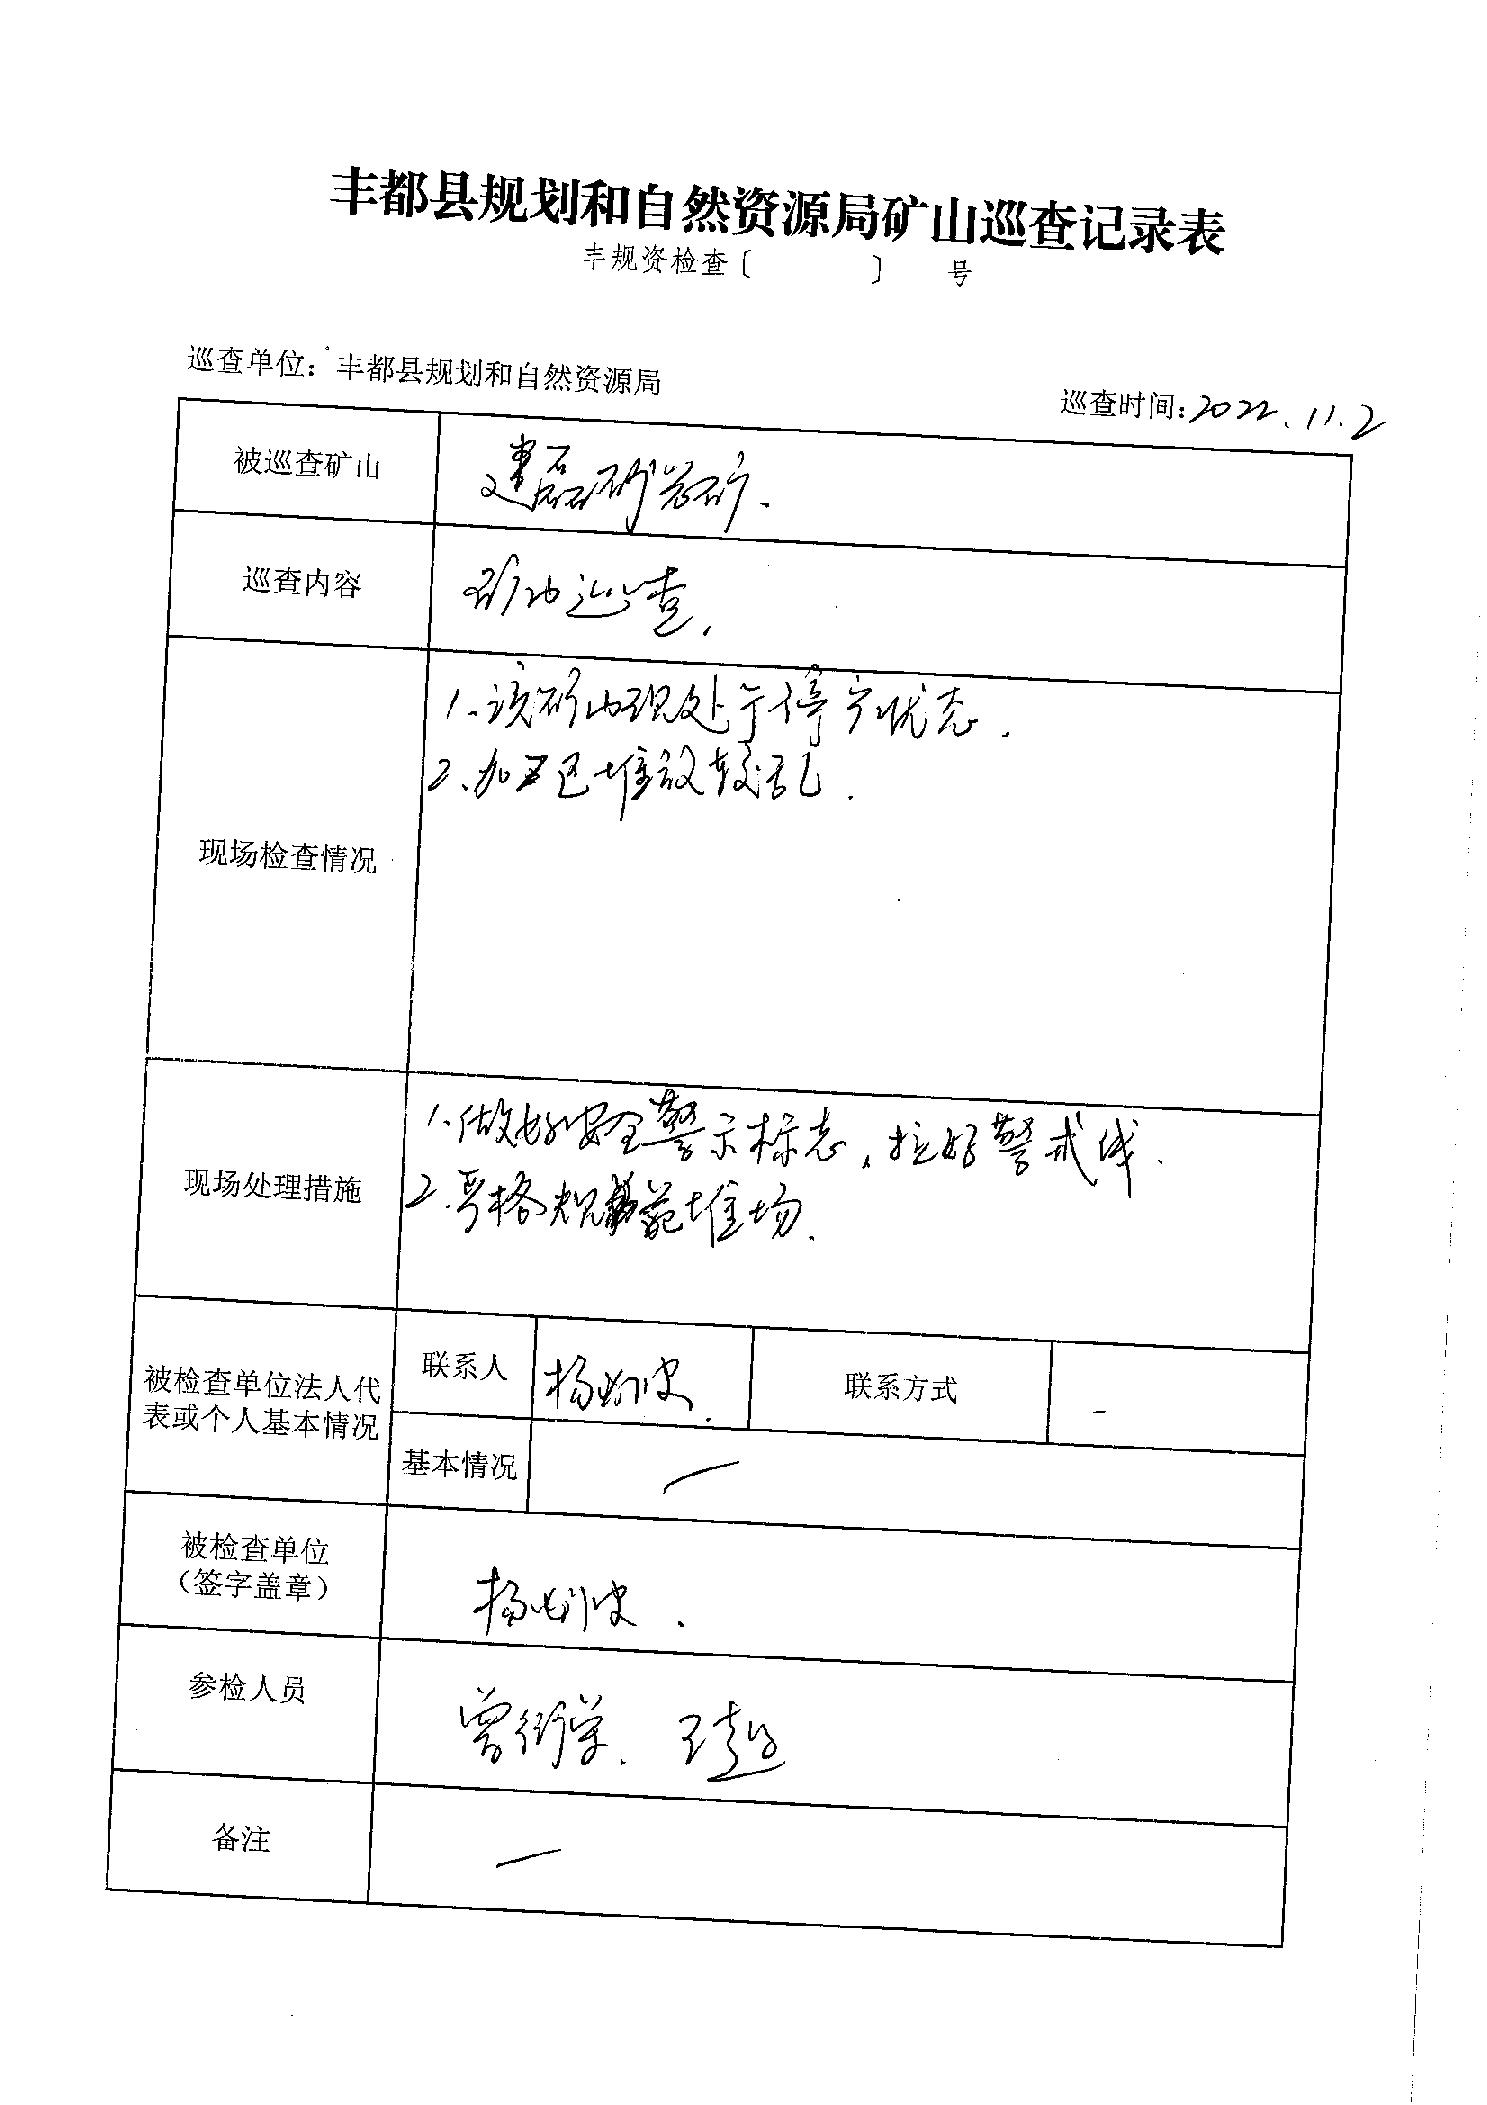 丰都县规划和自然资源局矿山巡查记录表
丰规资检查〔 〕 号
巡查单位：丰都县规划和自然资源局
巡查时间：2022.11.2
被巡查矿山 建磊砂岩矿.
巡查内容 矿山巡查.
现场检查情况
1.该矿山现处于停产状态.
2.加工区堆放较乱.
现场处理措施
1.做好安全警示标志，拉好警戒线.
2.严格规范堆场.
被检查单位法人代
表或个人基本情况
联系人 杨 联系方式 -
基本情况 一
被检查单位
（签字盖章）
杨
参检人员
曾 学、王
备注 一